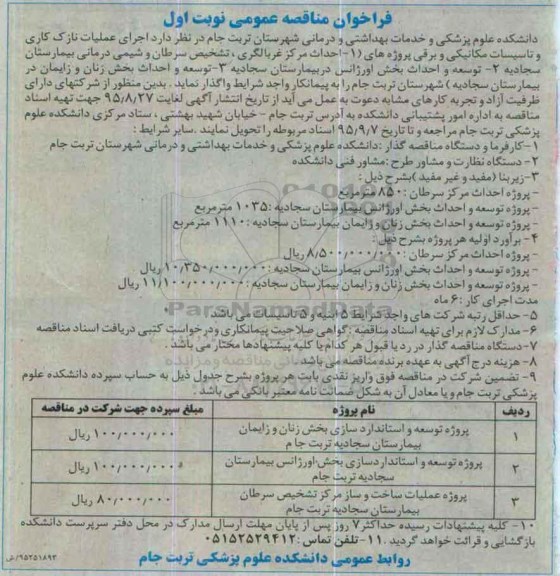 فراخوان مناقصه عمومی نوبت اول
دانشکده علوم پزشکی و خدمات بهداشتی و درمانی شهرستان تربت جام در نظر دارد اجرای عملیات نازک کاری
و تاسیسات مکانیکی و برقی پروژه های (۱-احداث مرکز غربالگری ، تشخیص سرطان و شیمی درمانی بیمارستان
سجادیه ۲- توسعه و احداث بخش اورژانس دربیمارستان سجادیه ۳-توسعه و احداث بخش زنان و زایمان در
بیمارستان سجادیه) شهرستان تربت جام را به پیمانکار واجد شرایط واگذار نماید . بدین منظور از شرکتهای دارای
ظرفیت آزاد و تجربه کارهای مشابه دعوت به عمل می آید از تاریخ انتشار آگهی لغایت ۹۵/۸/۲۷ جهت تهیه اسناد
مناقصه به اداره امور پشتیبانی دانشکده به آدرس تربت جام - خیابان شهید بهشتی ، ستاد مرکزی دانشکده علوم
پزشکی تربت جام مراجعه و تا تاریخ ۹۵/۹/۷ اسناد مربوطه را تحویل نمایند .سایر شرایط :
۱-کارفرما و دستگاه مناقصه گذار :دانشکده علوم پزشکی و خدمات بهداشتی و درمانی شهرستان تربت جام
۲- دستگاه نظارت و مشاور طرح :مشاور فنی دانشکده
۳-زیربنا (مفید و غیر مفید )بشرح ذیل :
- پروژه احداث مرکز سرطان :۸۵۰ مترمربع
- پروژه توسعه و احداث بخش اورژانس بیمارستان سجادیه :۱۰۳۵ مترمربع
- پروژه توسعه و احداث بخش زنان و زایمان بیمارستان سجادیه :۱۱۱۰ مترمربع
۴- برآورد اولیه هر پروژه بشرح ذیل :
- پروژه احداث مرکز سرطان :۸/۵۰۰/۰۰۰/۰۰۰ ریال
- پروژه توسعه و احداث بخش اورژانس بیمارستان سجادیه :۱۰/۳۵۰/۰۰۰/۰۰۰ ریال
- پروژه توسعه و احداث بخش زنان و زایمان بیمارستان سجادیه :۱۱/۱۰۰/۰۰۰/۰۰۰ ریال
مدت اجرای کار :۶ ماه
۵- حداقل رتبه شرکت های واجد شرایط ۵ ابنیه و ۵ تاسیسات می باشد .
۶- مدارک لازم برای تهیه اسناد مناقصه :گواهی صلاحیت پیمانکاری ودرخواست کتبی دریافت اسناد مناقصه
۷-دستگاه مناقصه گذار در رد یا قبول هر کدام یا کلیه پیشنهادها مختار می باشد .
۸- هزینه درج آگهی به عهده برنده مناقصه می باشد
۹- تضمین شرکت در مناقصه فوق واریز نقدی بابت هر پروژه بشرح جدول ذیل به حساب سپرده دانشکده علوم
پزشکی تربت جام و یا معادل آن به شکل ضمانت نامه معتبر بانکی می باشد :
ردیف نام پروژه مبلغ سپرده جهت شرکت در مناقصه
۱ پروژه توسعه و استاندارد سازی بخش زنان و زایمان بیمارستان سجادیه تربت جام ۱۰۰/۰۰۰/۰۰۰ ریال
۲ پروژه توسعه و استانداردسازی بخش اورژانس بیمارستان سجادیه تربت جام ۱۰۰/۰۰۰/۰۰۰ ریال
۳ پروژه عملیات ساخت و ساز مرکز تشخیص سرطان بیمارستان سجادیه تربت جام ۸۰/۰۰۰/۰۰۰ ریال
۱۰- کلیه پیشنهادات رسیده حداکثر ۷ روز پس از پایان مهلت ارسال مدارک در محل دفتر سرپرست دانشکده
بازگشایی و قرائت خواهد گردید .۱۱-تلفن تماس :۰۵۱۵۲۵۲۹۴۱۲
روابط عمومی دانشکده علوم پزشکی تربت جام
۹۵۲۵۱۸۹۲/ش
ParsNamadData